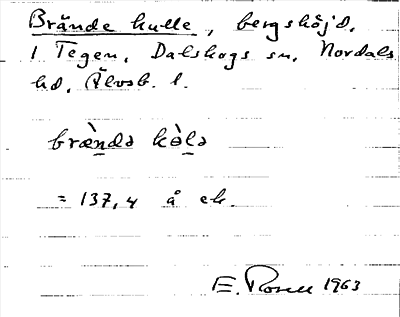 Brände kulle, bergshöjd,
1 Tegen, Dalskogs sn, Nordals
hd, Älvsb. l.
bræ̀ndə kòlə
= 137,4 å ek.
E. Rosell 1963